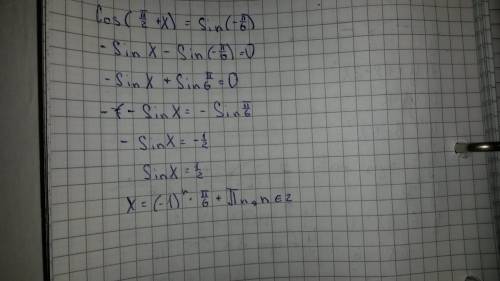 Cos(π/2 + x) = Sin(-π/6)
- Sin x - Sin(-π/6) = 0
- Sin x + Sin π/6 = 0
- Sin x = - Sin π/6
- Sin x = - 1/2
Sin x = 1/2
x = (-1)ⁿ · π/6 + πn, n ∈ z